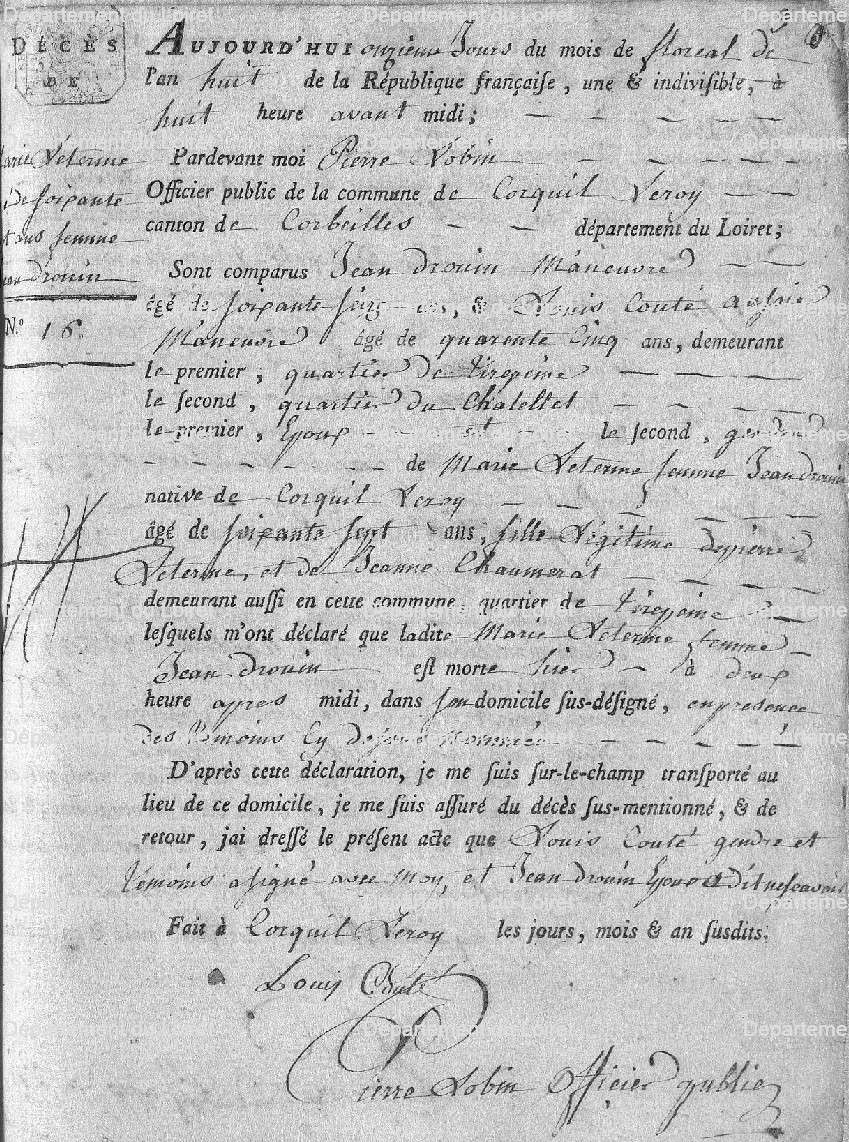 Département du Loiret Département du Loiret Départeme
DÉCÈS
DE
AUJOURD'HUI onzieme Jours du mois de floreal de
l'an huit de la République françaiſe, une & indiviſible, à
huit heure avant midi;
Marie Leterme
De ſoixante
ans femme
Jean drouin
N.º 16.
Pardevant moi Pierre Lobin
Officier public de la commune de Corquil Leroy
canton de Corbeilles département du Loiret;
Sont comparus Jean drouin Maneuvre
âgé de ſoixante ans, & Louis Couté auſsie
Maneuvre âgé de quarente Cinq ans, demeurant
le premier, quartier De tirepeine
le ſecond, quartier Du Chatellet
le premier, Epoux est le ſecond, gendre
de Marie Leterme femme Jean drouin
native de Corquil Leroy
âgé de ſoixante ſept ans, fille Légitime depierre
Leterme, et de Jeanne Chaumerat
demeurant auſſi en cette commune, quartier de tirepeine
leſquels m'ont déclaré que ladite Marie Leterme femme
Jean drouin eſt morte hier à deux
heure apres midi, dans ſon domicile ſus-déſigné, enpreſence
des temoins Cy deſsus Nommés
D'après cette déclaration, je me ſuis ſur-le-champ tranſporté au
lieu de ce domicile, je me ſuis aſſuré du décès ſus-mentionné, & de
retour, jai dreſſé le préſent acte que Louis Couté gendre et
temoins aſigné avec moy, et Jean drouin Epoux a dit neſcavoir
Fait à Corquil Leroy les jours, mois & an ſusdits.
Louis Couté
Pierre Lobin Officier public